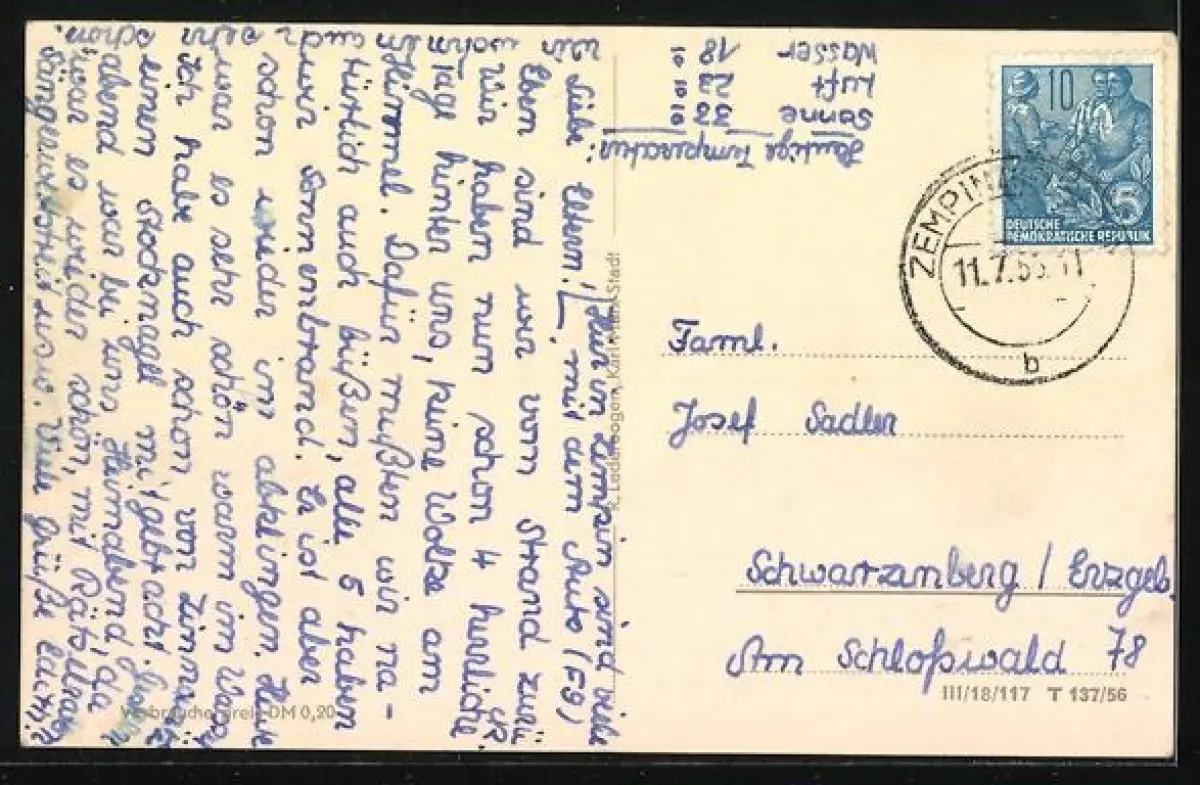 Liebe Eltern!
Eben sind wir vom Strand zurü
ck.
Wir haben nun schon 4 herrliche
Tage hinter uns, keine Wolke am
Himmel. Dafür mußten wir na-
türlich auch büßen, alle 5 haben
wir Sonnenbrand. Er ist aber
schon wieder im abklingen. Heute
war es sehr schön warm im Wasser
Ich habe auch schon von Zinnowitz
einen Stocknagel mitgebracht.
abend war bei uns Heimabend, da
war es wieder schön, mit Rätselraten
Sängerwettstreit usw. Viele Grüße Eure
Hier in Zempin sind viele
mit dem Auto (F9)
Heutige Temperatur:
Sonne 32°
Luft 22°
Wasser 18°
10
5
DEUTSCHE
DEMOKRATISCHE REPUBLIK
ZEMPIN
11.7.
b
Faml.
Josef Sadler
Schwarzenberg / Erzgeb.
Am Schloßwald 78
III/18/117 T 137/56
Verbraucherpreis DM 0,20
K. Lederbogen, Karl-Marx-Stadt